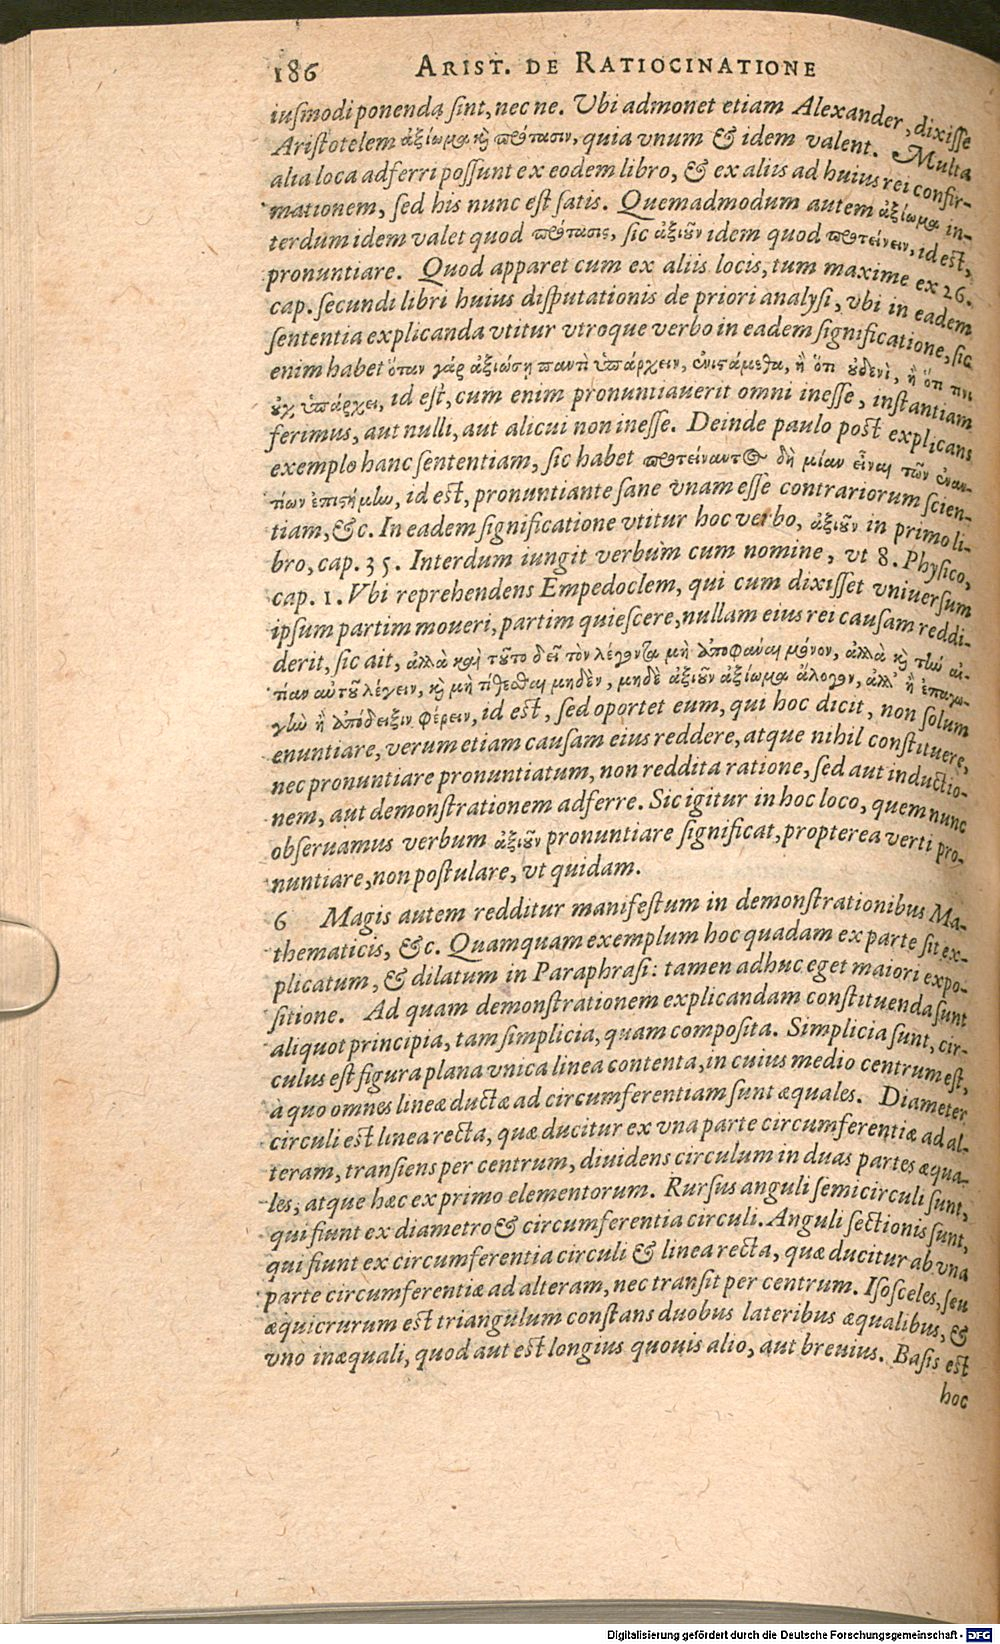 186 ARIST. DE RATIOCINATIONE
iuſmodi ponenda ſint, nec ne. Vbi admonet etiam Alexander, dixiſſe
Ariſtotelem ἀξίωμα καὶ πρότασιν, quia vnum & idem valent. Multa
alia loca adferri poſſunt ex eodem libro, & ex aliis ad huius rei confir-
mationem, ſed his nunc eſt ſatis. Quemadmodum autem ἀξίωμα in-
terdum idem valet quod πρότασις, ſic ἀξιοῦν idem quod προτείνειν, id eſt,
pronuntiare. Quod apparet cum ex aliis locis, tum maxime ex 26.
cap. ſecundi libri huius diſputationis de priori analyſi, vbi in eadem
ſententia explicanda vtitur vtroque verbo in eadem ſignificatione, ſic
enim habet ὅταν γάρ ἀξιώσῃ παντὶ ὑπάρχειν, ἐνιστάμεθα, ἢ ὅτι οὐδενὶ, ἢ ὅτι τινι
οὐχ ὑπάρχει, id eſt, cum enim pronuntiauerit omni ineſſe, inſtantiam
ferimus, aut nulli, aut alicui non ineſſe. Deinde paulo poſt explicans
exemplo hanc ſententiam, ſic habet προτείναντος δὴ μίαν εἶναι τῶν ἐναν-
τίων ἐπιστήμην, id eſt, pronuntiante ſane vnam eſſe contrariorum ſcien-
tiam, &c. In eadem ſignificatione vtitur hoc verbo, ἀξιοῦν in primo li-
bro, cap. 35. Interdum iungit verbum cum nomine, vt 8. Phyſico,
cap. 1. Vbi reprehendens Empedoclem, qui cum dixiſſet vniuerſum
ipſum partim moueri, partim quieſcere, nullam eius rei cauſam reddi-
derit, ſic ait, ἀλλὰ καὶ τοῦτο δεῖ τὸν λέγοντα μὴ ἀποφάναι μόνον, ἀλλὰ καὶ τὴν αἰ-
τίαν αὐτοῦ λέγειν, καὶ μὴ τίθεσθαι μηδὲν, μηδὲ ἀξιοῦν ἀξίωμα ἄλογον, ἀλλ' ἢ ἐπαγω-
γὴν ἢ ἀπόδειξιν φέρειν, id eſt, ſed oportet eum, qui hoc dicit, non ſolum
enuntiare, verum etiam cauſam eius reddere, atque nihil conſtituere,
nec pronuntiare pronuntiatum, non reddita ratione, ſed aut inductio-
nem, aut demonſtrationem adferre. Sic igitur in hoc loco, quem nunc
obſeruamus verbum ἀξιοῦν pronuntiare ſignificat, propterea verti pro-
nuntiare, non poſtulare, vt quidam.
6 Magis autem redditur manifeſtum in demonſtrationibus Ma-
thematicis, &c. Quamquam exemplum hoc quadam ex parte ſit ex-
plicatum, & dilatum in Paraphraſi: tamen adhuc eget maiori expo-
ſitione. Ad quam demonſtrationem explicandam conſtituenda ſunt
aliquot principia, tam ſimplicia, quam compoſita. Simplicia ſunt, cir-
culus eſt figura plana vnica linea contenta, in cuius medio centrum eſt,
a quo omnes lineæ ductæ ad circumferentiam ſunt æquales. Diameter
circuli eſt linea recta, quæ ducitur ex vna parte circumferentiæ ad al-
teram, tranſiens per centrum, diuidens circulum in duas partes æqua-
les, atque hæc ex primo elementorum. Rurſus anguli ſemicirculi ſunt,
qui fiunt ex diametro & circumferentia circuli. Anguli ſectionis ſunt,
qui fiunt ex circumferentia circuli & linea recta, quæ ducitur ab vna
parte circumferentiæ ad alteram, nec tranſit per centrum. Iſoſceles, ſeu
æquicrurum eſt triangulum conſtans duobus lateribus æqualibus, &
vno inæquali, quod aut eſt longius quouis alio, aut breuius. Baſis eſt
hoc
Digitalisierung gefördert durch die Deutsche Forschungsgemeinschaft - DFG